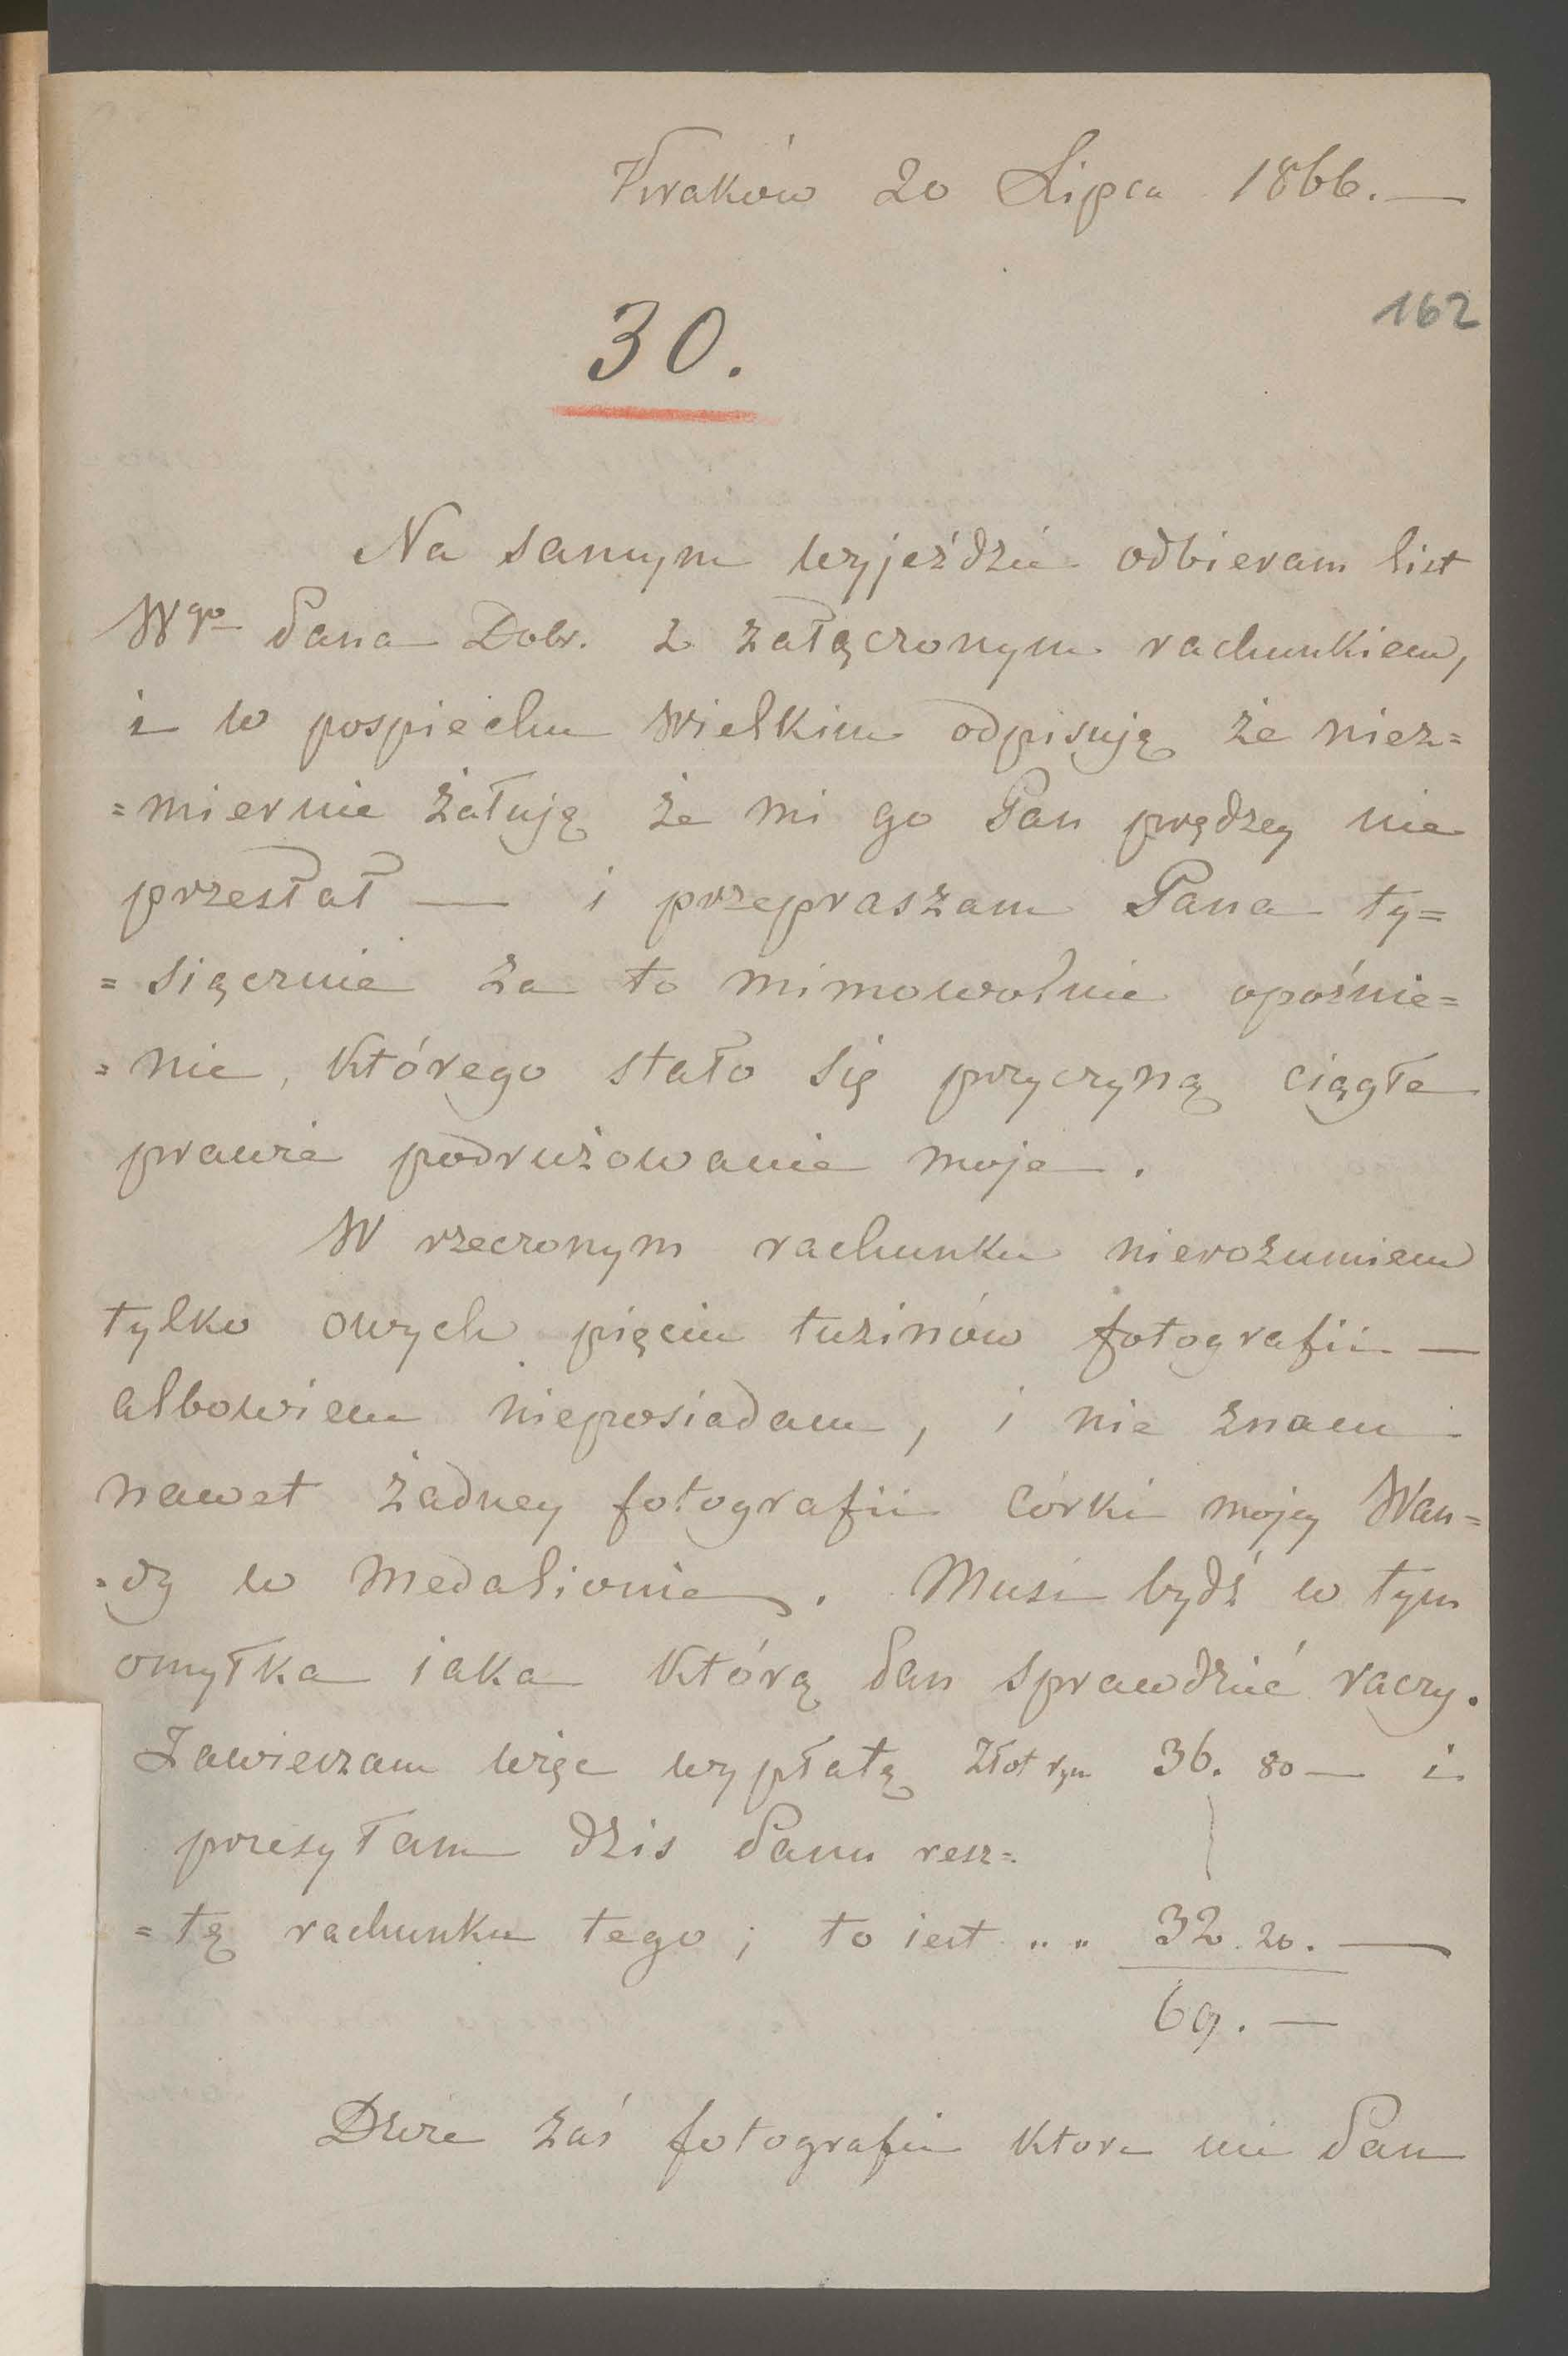 Kraków 20 Lipca 1866.—
162
30.
Na samym wyjeździe odbieram list
Wgo Pana Dobr. z załączonym rachunkiem,
i w pospiechu wielkim odpisuję że niez=
=miernie żałuję że mi go Pan prędzey nie
przesłał — i przepraszam Pana ty=
=siącznie za to mimowolnie opóźnie=
=nie, którego stało się przyczyną ciągłe
prawie podrużowanie moje.
W rzeczonym rachunku nierozumiem
tylko owych pięciu tuzinów fotografii —
albowiem nieposiadam, i nie znam
nawet żadney fotografii córki mojey Wan=
=dy w medalionie. Musi bydź w tym
omyłka iaka którą Pan sprawdzić raczy.
Zawieszam więc wypłatę złot ryn 36. 80 — i
przesyłam dzis Panu resz=
=tę rachunku tego; to iest „ „ 32. 20. —
69. —
Dwie zaś fotografie ktore mi Pan